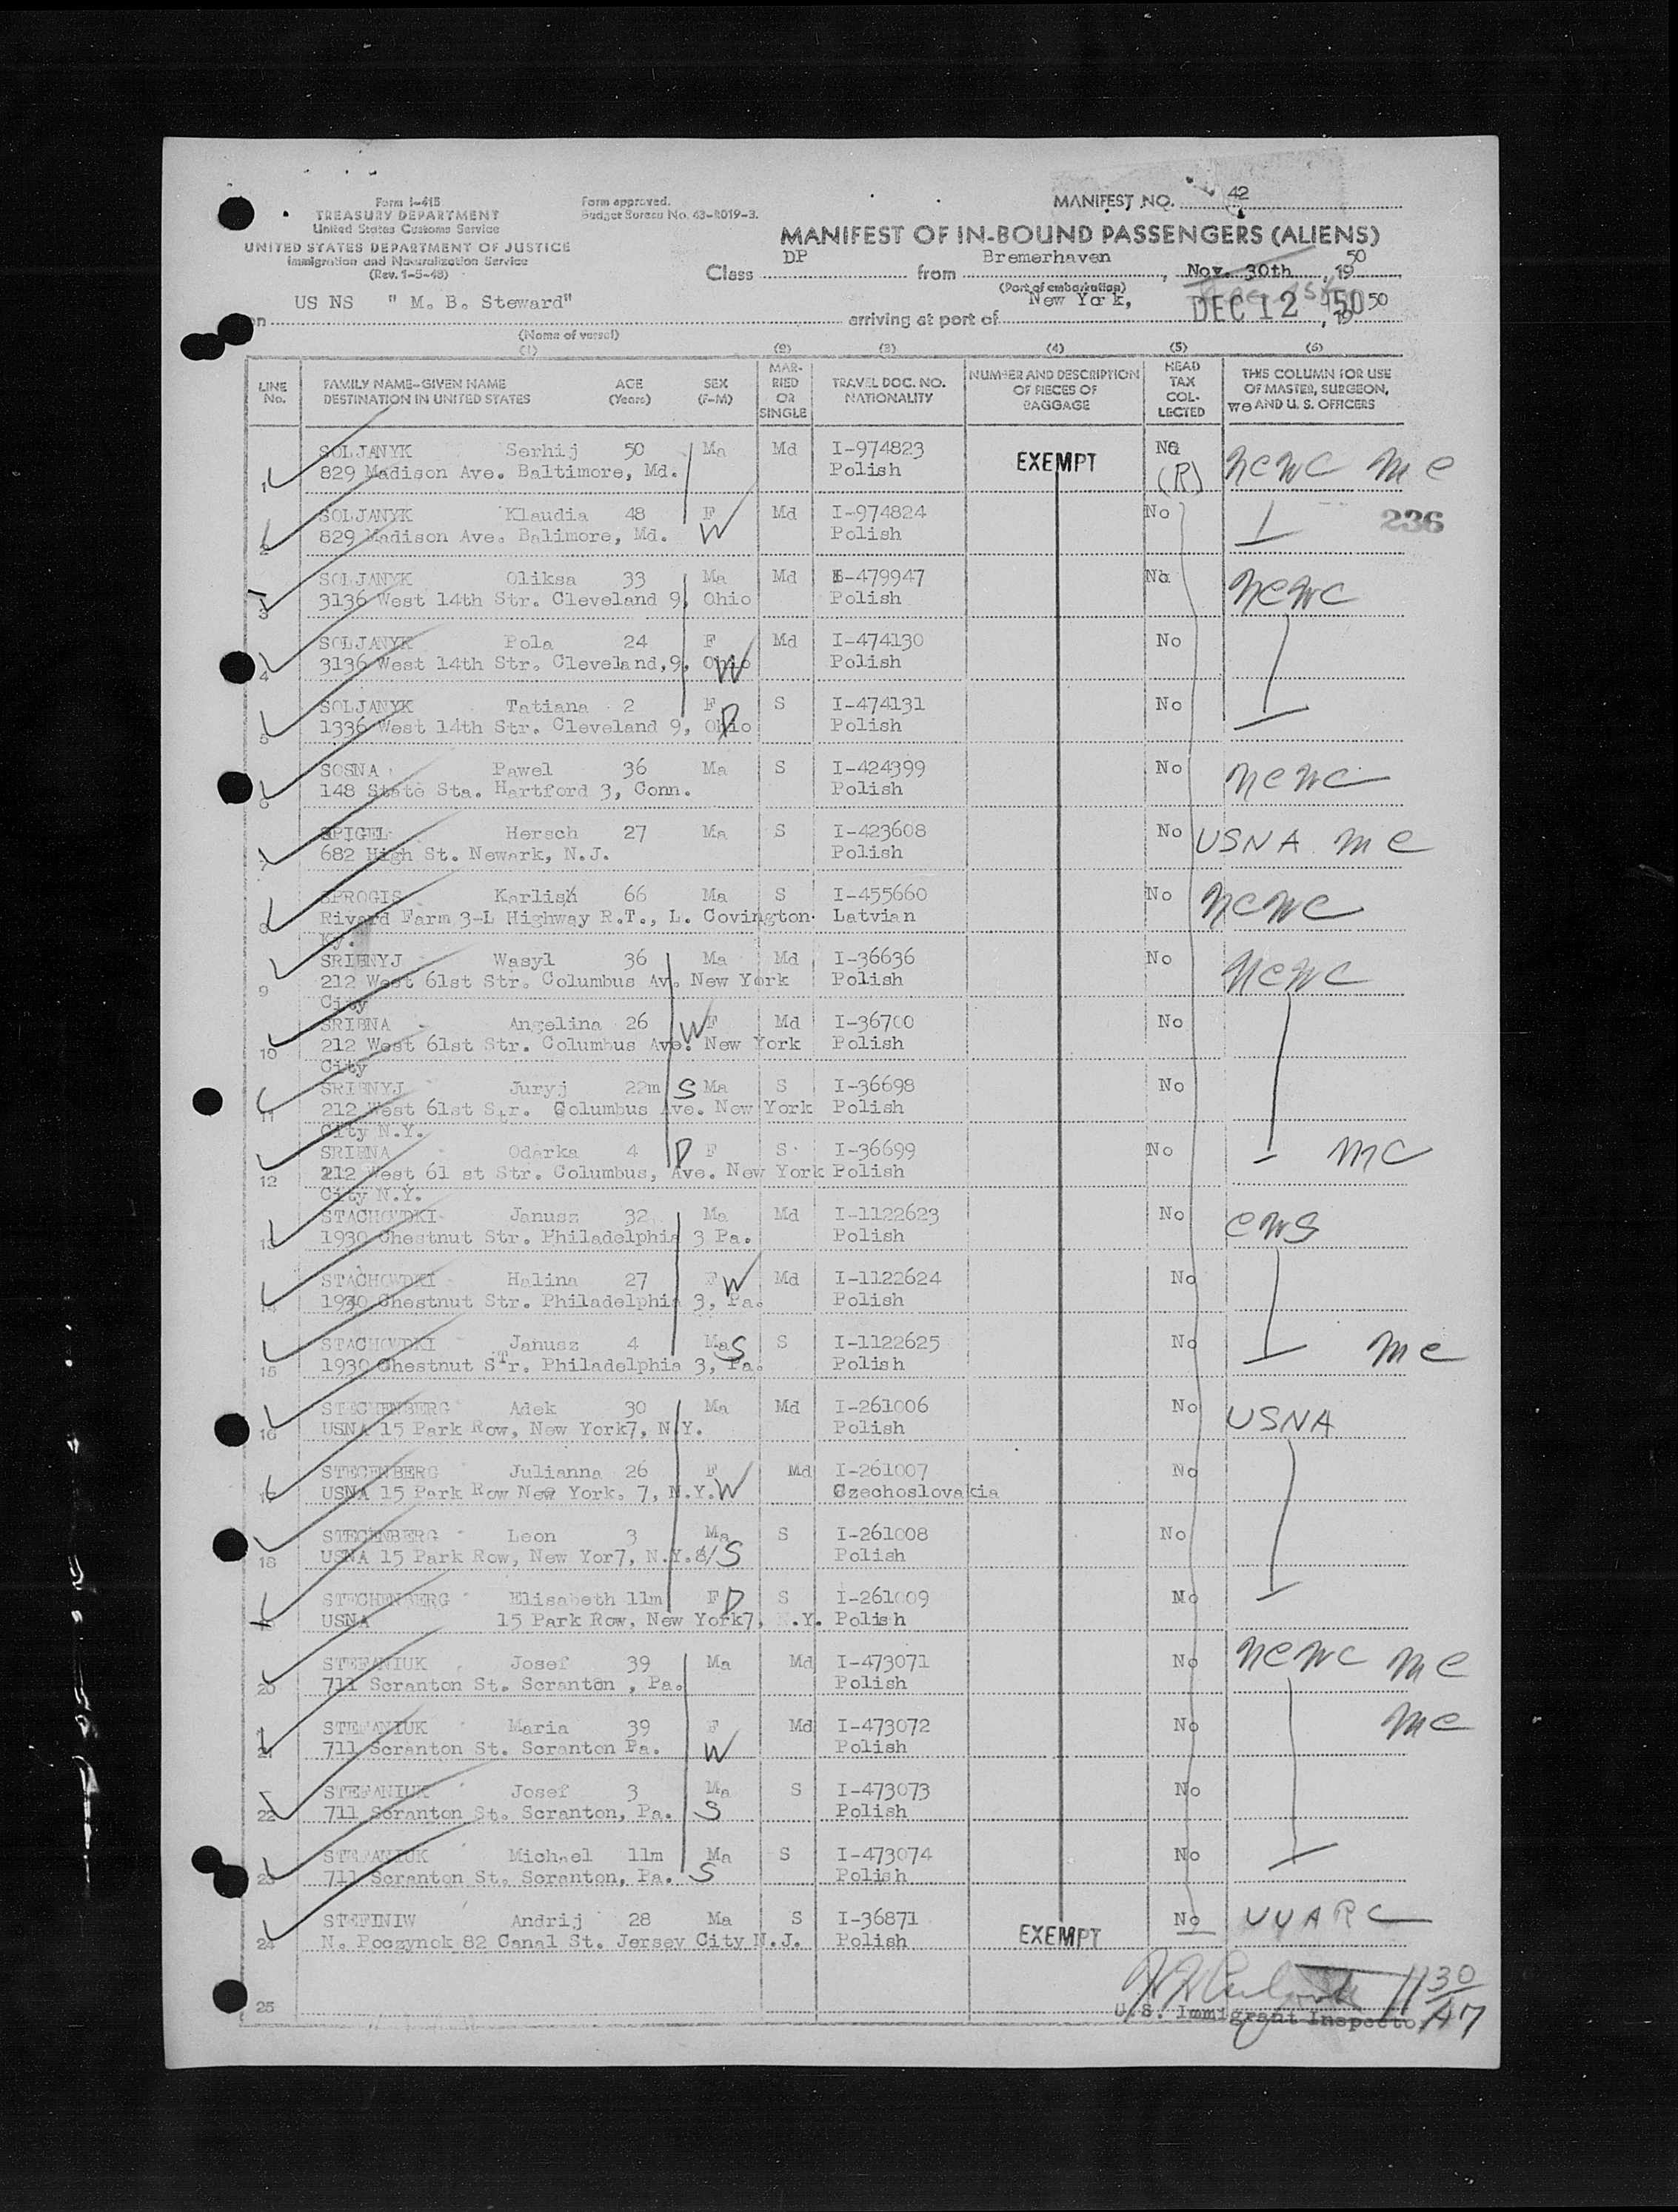 Form I-415
TREASURY DEPARTMENT
United States Customs Service
UNITED STATES DEPARTMENT OF JUSTICE
Immigration and Naturalization Service
(Rev. 1-5-48)
Form approved.
Budget Bureau No. 43-R019-3.
MANIFEST NO. 42
MANIFEST OF IN-BOUND PASSENGERS (ALIENS)
Class DP from Bremerhaven, Nov. 30th, 1950
(Port of embarkation)
US NS " M. B. Steward"
on arriving at port of New York, DEC 12 1950 50
(Name of vessel)
(1) (2) (3) (4) (5) (6)
LINE No.
FAMILY NAME-GIVEN NAME AGE SEX
DESTINATION IN UNITED STATES (Years) (F-M)
MAR-RIED OR SINGLE
TRAVEL DOC. NO. NATIONALITY
NUMBER AND DESCRIPTION OF PIECES OF BAGGAGE
HEAD TAX COL-LECTED
THIS COLUMN FOR USE OF MASTER, SURGEON, AND U. S. OFFICERS
1 SOLJANYK Serhij 50 Ma Md I-974823 EXEMPT No NCWC MC
829 Madison Ave. Baltimore, Md. Polish (R)
2 SOLJANYK Klaudia 48 F Md I-974824 No 236
829 Madison Ave. Balimore, Md. W Polish
3 SOLJANYK Oliksa 33 Ma Md I-479947 No NCWC
3136 West 14th Str. Cleveland 9, Ohio Polish
4 SOLJANYK Pola 24 F Md I-474130 No
3136 West 14th Str. Cleveland,9, Ohio W Polish
5 SOLJANYK Tatiana 2 F S I-474131 No
1336 West 14th Str. Cleveland 9, Ohio D Polish
6 SOSNA Pawel 36 Ma S I-424399 No NCWC
148 State Sta. Hartford 3, Conn. Polish
7 SPIGEL Hersch 27 Ma S I-423608 No USNA MC
682 High St. Newark, N.J. Polish
8 SPROGIS Karlish 66 Ma S I-455660 No NCWC
Rivard Farm 3-L Highway R.T., L. Covington Latvian
Ky.
9 SRIBNYJ Wasyl 36 Ma Md I-36636 No NCWC
212 West 61st Str. Columbus Av. New York Polish
City
10 SRIBNA Angelina 26 W F Md I-36700 No
212 West 61st Str. Columbus Ave. New York Polish
City
11 SRIBNYJ Juryj 22m S Ma S I-36698 No
212 West 61st Str. Columbus Ave. New York Polish
City N.Y.
12 SRIBNA Odarka 4 D F S I-36699 No MC
212 West 61 st Str. Columbus, Ave. New York Polish
City N.Y.
13 STACHOWDKI Janusz 32 Ma Md I-1122623 No CWS
1930 Chestnut Str. Philadelphia 3 Pa. Polish
14 STACHOWDKI Halina 27 F W Md I-1122624 No
1930 Chestnut Str. Philadelphia 3, Pa. Polish
15 STACHOWDKI Janusz 4 Ma S S I-1122625 No MC
1930 Chestnut STr. Philadelphia 3, Pa. Polish
16 STECHENBERG Adek 30 Ma Md I-261006 No USNA
USNA 15 Park Row, New York7, N.Y. Polish
17 STECENBERG Julianna 26 F Md I-261007 No
USNA 15 Park Row New York. 7, N.Y. W Czechoslovakia
18 STECENBERG Leon 3 Ma S I-261008 No
USNA 15 Park Row, New Yor7, N.Y. S Polish
19 STECHENBERG Elisabeth 11m F D S I-261009 No
USNA 15 Park Row, New York7, N.Y. Polish
20 STEFANIUK Josef 39 Ma Md I-473071 No NCWC MC
711 Scranton St. Scranton , Pa. Polish
21 STEFANIUK Maria 39 F Md I-473072 No MC
711 Scranton St. Scranton Pa. W Polish
22 STEFANIUK Josef 3 Ma S I-473073 No
711 Scranton St. Scranton, Pa. S Polish
23 STEFANIUK Michael 11m Ma S I-473074 No
711 Scranton St. Scranton, Pa. S Polish
24 STEFINIW Andrij 28 Ma S I-36871 No UUARC
N. Poczynok 82 Canal St. Jersey City N.J. Polish EXEMPT
25
U.S. Immigrant Inspector
1130